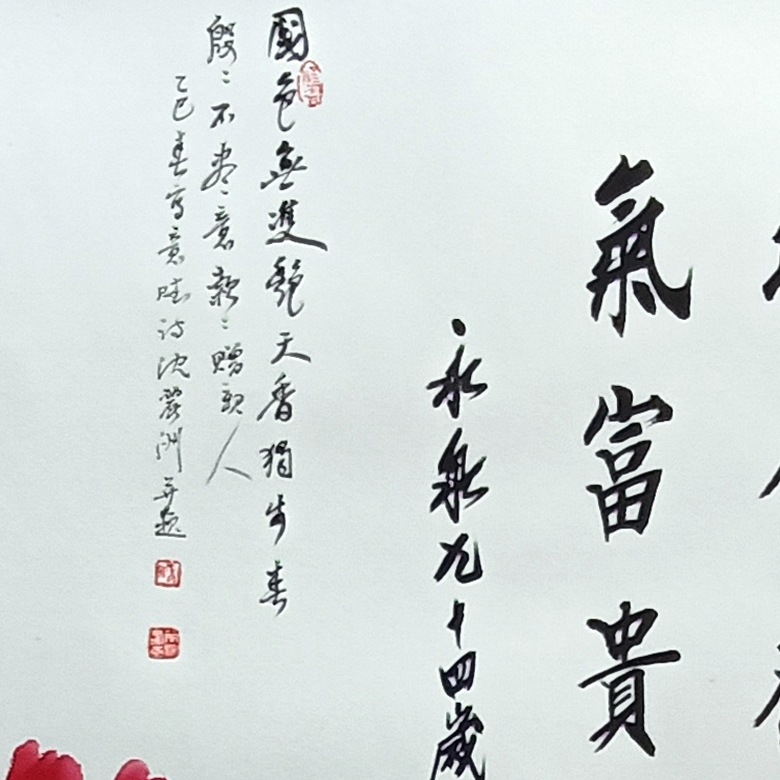 氣富貴
永泉九十四歲
國色無雙艷天香獨步春
殷殷不盡意款款贈親人
乙巳春寫意味詩沈麗洲并題